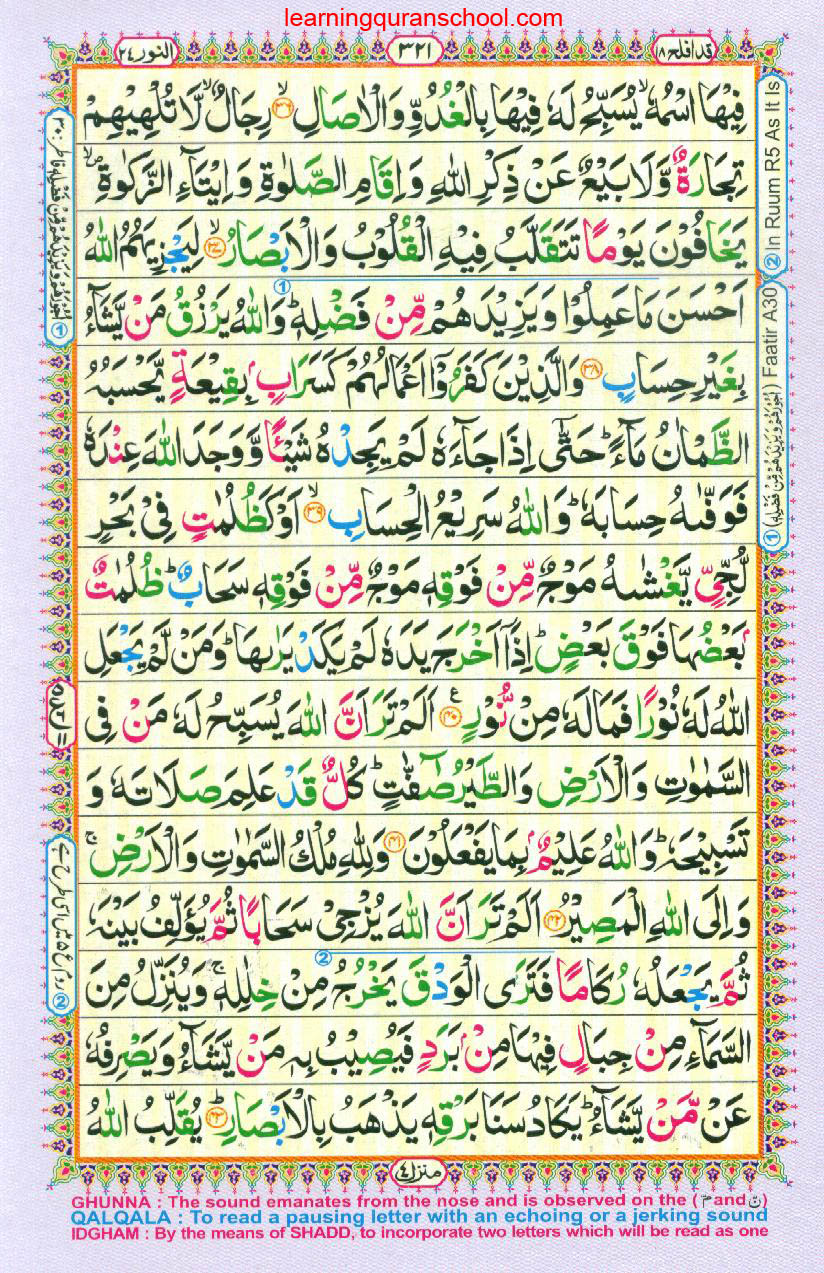 learningquranschool.com
قد افلح ۱۸
۳۲۱
النور ۲۴
فِیْهَا اسْمُهٗ ۙ یُسَبِّحُ لَهٗ فِیْهَا بِالْغُدُوِّ وَ الْاٰصَالِ ۙ﴿۳۶﴾ رِجَالٌ ۙ لَّا تُلْهِیْهِمْ
تِجَارَةٌ وَّ لَا بَیْعٌ عَنْ ذِكْرِ اللّٰهِ وَ اِقَامِ الصَّلٰوةِ وَ اِیْتَآءِ الزَّكٰوةِ ۪ۙ
یَخَافُوْنَ یَوْمًا تَتَقَلَّبُ فِیْهِ الْقُلُوْبُ وَ الْاَبْصَارُ ۙ﴿۳۷﴾ لِیَجْزِیَهُمُ اللّٰهُ
اَحْسَنَ مَا عَمِلُوْا وَ یَزِیْدَهُمْ مِّنْ فَضْلِهٖ ؕ وَ اللّٰهُ یَرْزُقُ مَنْ یَّشَآءُ
بِغَیْرِ حِسَابٍ ﴿۳۸﴾ وَ الَّذِیْنَ كَفَرُوْۤا اَعْمَالُهُمْ كَسَرَابٍۭ بِقِیْعَةٍ یَّحْسَبُهُ
الظَّمْاٰنُ مَآءً ؕ حَتّٰۤی اِذَا جَآءَهٗ لَمْ یَجِدْهُ شَیْـًٔا وَّ وَجَدَ اللّٰهَ عِنْدَهٗ
فَوَفّٰىهُ حِسَابَهٗ ؕ وَ اللّٰهُ سَرِیْعُ الْحِسَابِ ۙ﴿۳۹﴾ اَوْ كَظُلُمٰتٍ فِیْ بَحْرٍ
لُّجِّیٍّ یَّغْشٰىهُ مَوْجٌ مِّنْ فَوْقِهٖ مَوْجٌ مِّنْ فَوْقِهٖ سَحَابٌ ؕ ظُلُمٰتٌۢ
بَعْضُهَا فَوْقَ بَعْضٍ ؕ اِذَاۤ اَخْرَجَ یَدَهٗ لَمْ یَكَدْ یَرٰىهَا ؕ وَ مَنْ لَّمْ یَجْعَلِ
اللّٰهُ لَهٗ نُوْرًا فَمَا لَهٗ مِنْ نُّوْرٍ ﴿۴۰﴾ ع اَلَمْ تَرَ اَنَّ اللّٰهَ یُسَبِّحُ لَهٗ مَنْ فِی
السَّمٰوٰتِ وَ الْاَرْضِ وَ الطَّیْرُ صٰٓفّٰتٍ ؕ كُلٌّ قَدْ عَلِمَ صَلَاتَهٗ وَ
تَسْبِیْحَهٗ ؕ وَ اللّٰهُ عَلِیْمٌۢ بِمَا یَفْعَلُوْنَ ﴿۴۱﴾ وَ لِلّٰهِ مُلْكُ السَّمٰوٰتِ وَ الْاَرْضِ ۚ
وَ اِلَی اللّٰهِ الْمَصِیْرُ ﴿۴۲﴾ اَلَمْ تَرَ اَنَّ اللّٰهَ یُزْجِیْ سَحَابًا ثُمَّ یُؤَلِّفُ بَیْنَهٗ
ثُمَّ یَجْعَلُهٗ رُكَامًا فَتَرَی الْوَدْقَ یَخْرُجُ مِنْ خِلٰلِهٖ ۚ وَ یُنَزِّلُ مِنَ
السَّمَآءِ مِنْ جِبَالٍ فِیْهَا مِنْۢ بَرَدٍ فَیُصِیْبُ بِهٖ مَنْ یَّشَآءُ وَ یَصْرِفُهٗ
عَنْ مَّنْ یَّشَآءُ ؕ یَكَادُ سَنَا بَرْقِهٖ یَذْهَبُ بِالْاَبْصَارِ ؕ﴿۴۳﴾ یُقَلِّبُ اللّٰهُ
② In Ruum R5 As It Is
① (اُجُوْرَهُمْ وَ یَزِیْدَهُمْ مِّنْ فَضْلِهٖ) Faatir A30
منزل ۴
GHUNNA : The sound emanates from the nose and is observed on the (م and ن)
QALQALA : To read a pausing letter with an echoing or a jerking sound
IDGHAM : By the means of SHADD, to incorporate two letters which will be read as one